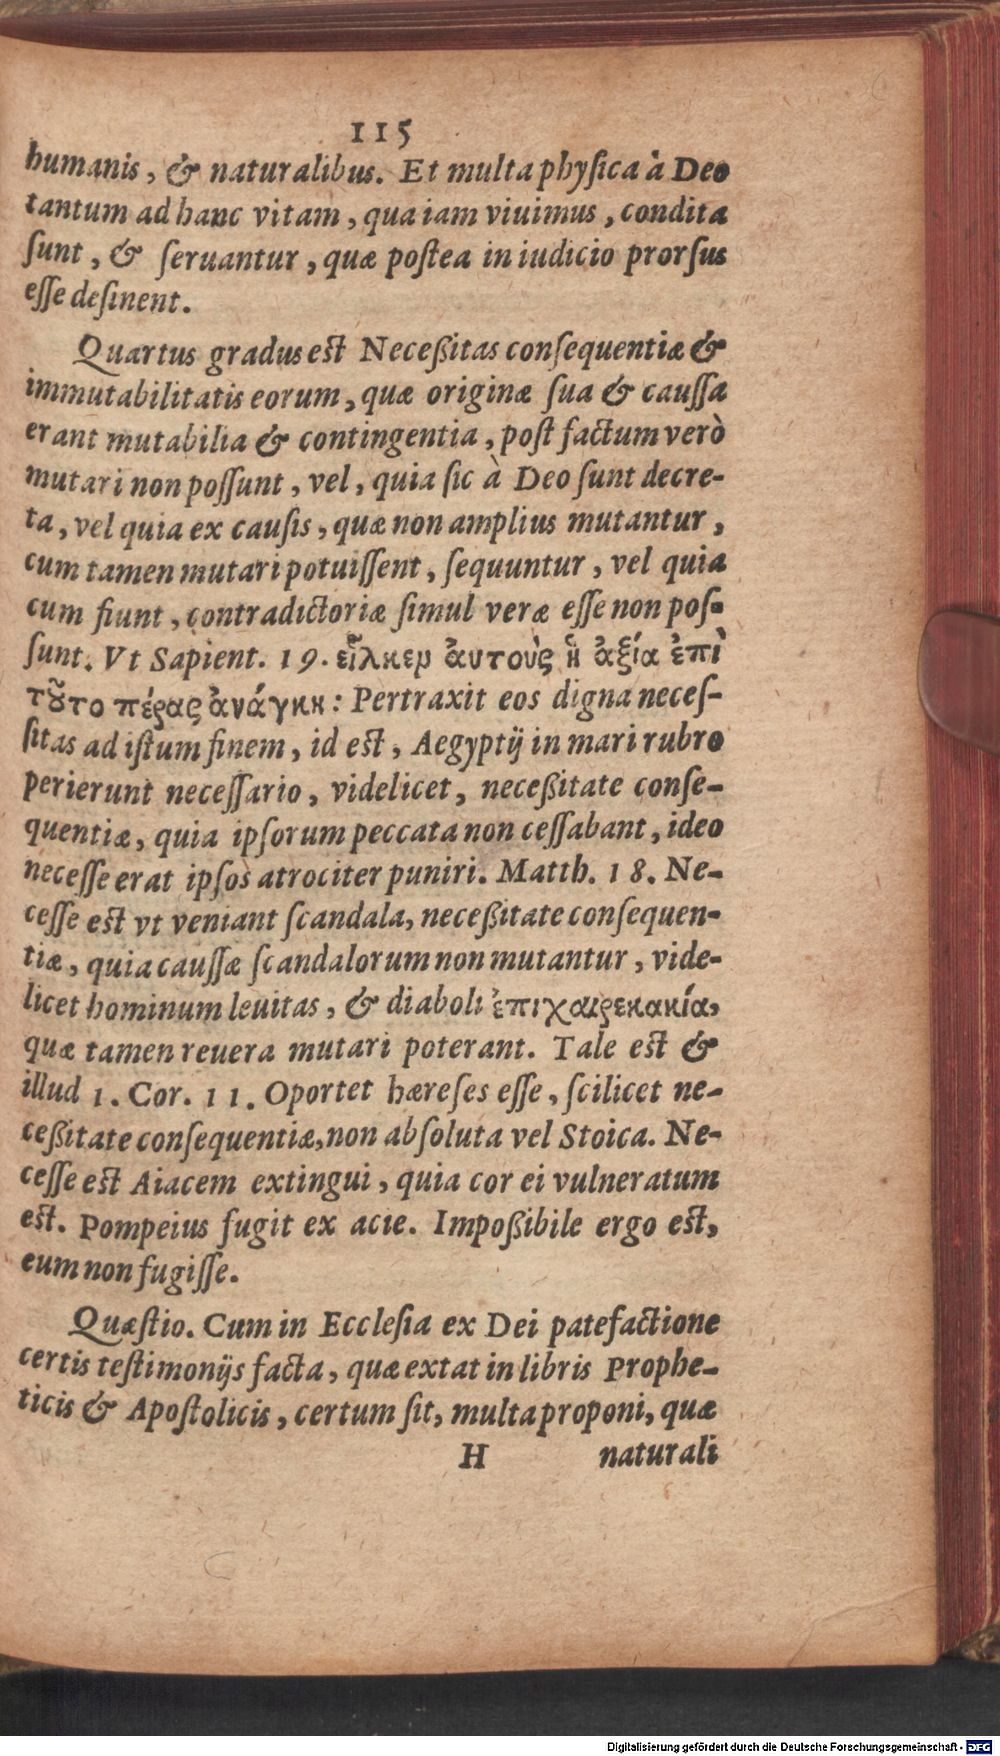 115
humanis, & naturalibus. Et multa physica à Deo
tantum ad hanc vitam, qua iam viuimus, condita
sunt, & seruantur, quæ postea in iudicio prorsus
esse desinent.
Quartus gradus est Neceßitas consequentiæ &
immutabilitatis eorum, quæ originæ sua & caussa
erant mutabilia & contingentia, post factum verò
mutari non possunt, vel, quia sic à Deo sunt decre-
ta, vel quia ex causis, quæ non amplius mutantur,
cum tamen mutari potuissent, sequuntur, vel quia
cum fiunt, contradictoriæ simul veræ esse non pos-
sunt. Vt Sapient. 19. εἷλκεν ἀυτοὺς ἡ ἀξία ἐπὶ
τοῦτο πέρας ἀνάγκη: Pertraxit eos digna neces-
sitas ad istum finem, id est, Aegyptij in mari rubro
perierunt necessario, videlicet, neceßitate conse-
quentiæ, quia ipsorum peccata non cessabant, ideo
necesse erat ipsos atrociter puniri. Matth. 18. Ne-
cesse est vt veniant scandala, neceßitate consequen-
tiæ, quia caussæ scandalorum non mutantur, vide-
licet hominum leuitas, & diaboli ἐπιχαιρεκακία,
quæ tamen reuera mutari poterant. Tale est &
illud 1. Cor. 11. Oportet hæreses esse, scilicet ne-
ceßitate consequentiæ, non absoluta vel Stoica. Ne-
cesse est Aiacem extingui, quia cor ei vulneratum
est. Pompeius fugit ex acie. Impoßibile ergo est,
eum non fugisse.
Quæstio. Cum in Ecclesia ex Dei patefactione
certis testimonijs facta, quæ extat in libris Prophe-
ticis & Apostolicis, certum sit, multa proponi, quæ
H naturali
Digitalisierung gefördert durch die Deutsche Forschungsgemeinschaft - DFG